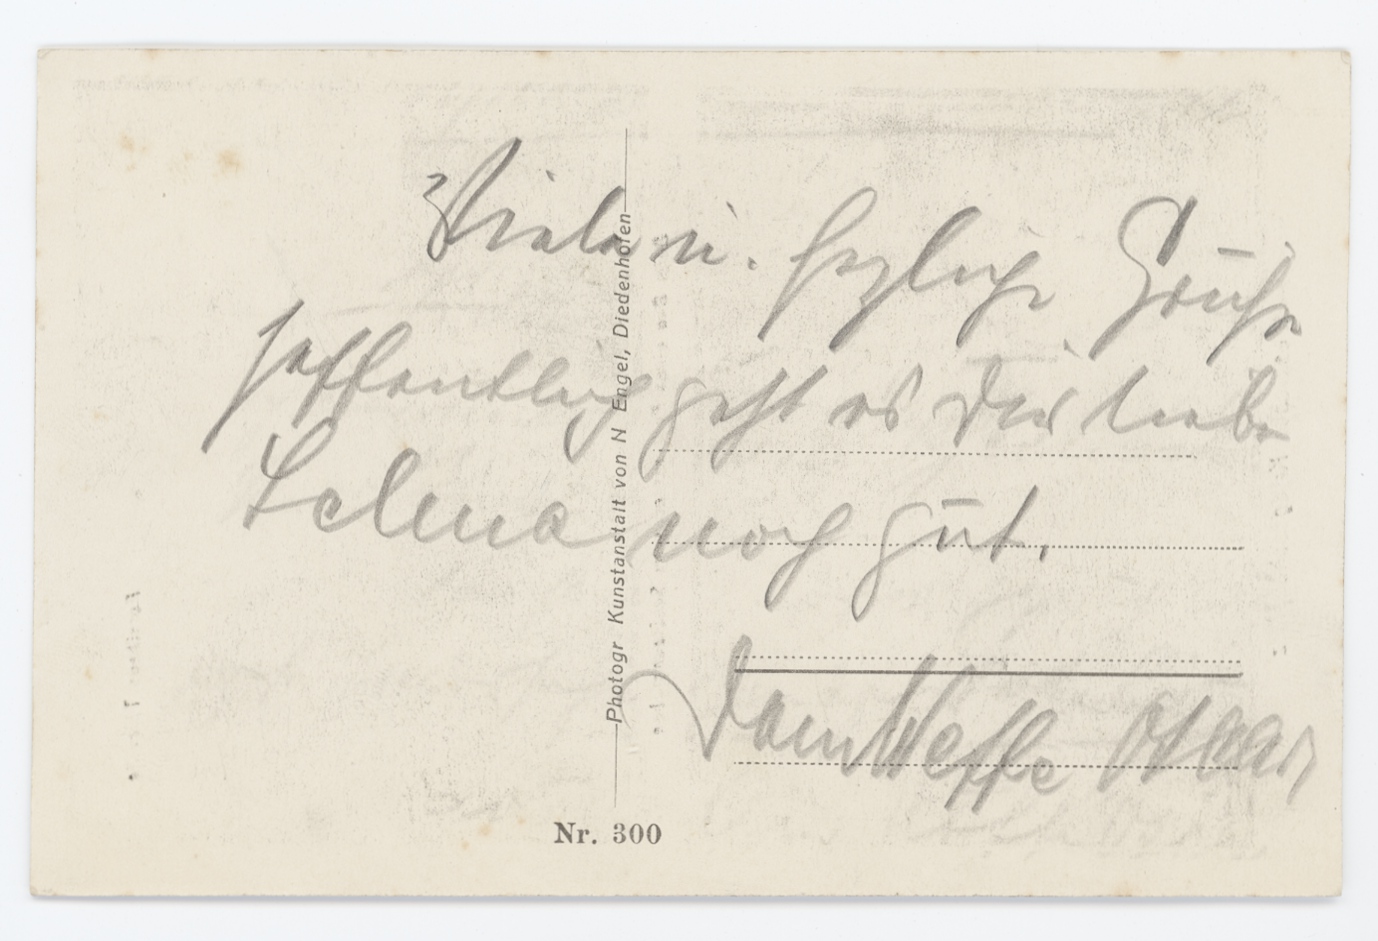 Viele u. herzliche Grüße
hoffentlich geht es Dir liebe
Selma noch gut.
Dein Neffe Oskar
Photogr Kunstanstalt von N Engel, Diedenhofen
Nr. 300